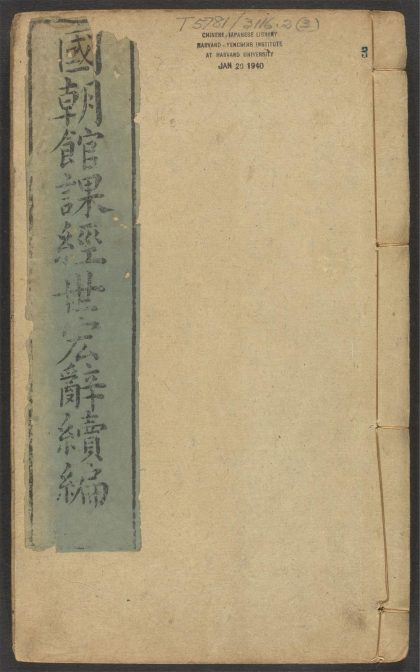 T 5781/3116.2(3)
CHINESE-JAPANESE LIBRARY
HARVARD-YENCHING INSTITUTE
AT HARVARD UNIVERSITY
JAN 20 1940
3
國朝館課經世宏辭續編